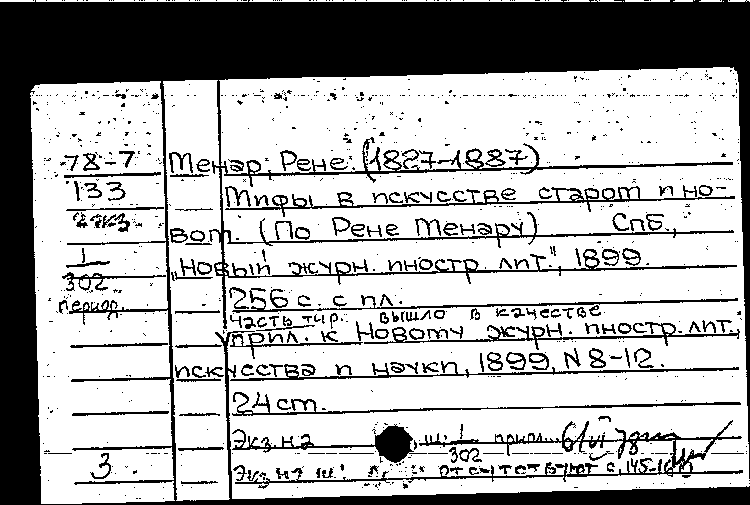 78-7 Менар, Рене (1827-1887)
133 Мифы в искусстве старом и но-
2 экз. вом. (По Рене Менару) Спб.,
1 „Новый журн. иностр. лит.", 1899.
302
период. 256 с. с ил.
Часть тир. вышло в качестве
прил. к Новому журн. иностр. лит.,
искусства и науки, 1899, N 8-12.
24 cm.
Экз. н2 ш: 1/302 прил.
3. Экз н1 ш: отсутствуют с. 145-